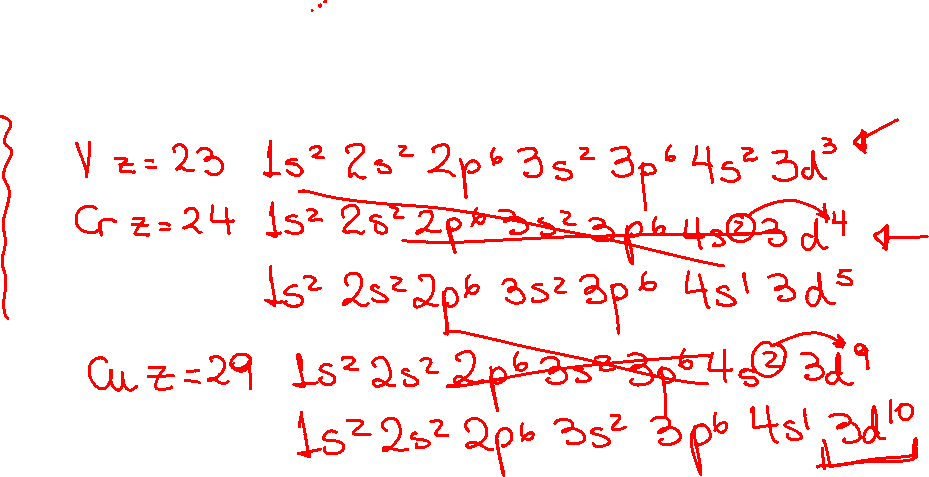 V z=23 1s² 2s² 2p⁶ 3s² 3p⁶ 4s² 3d³
Cr z=24 1s² 2s² 2p⁶ 3s² 3p⁶ 4s② 3d⁴
1s² 2s² 2p⁶ 3s² 3p⁶ 4s¹ 3d⁵
Cu z=29 1s² 2s² 2p⁶ 3s² 3p⁶ 4s② 3d⁹
1s² 2s² 2p⁶ 3s² 3p⁶ 4s¹ 3d¹⁰